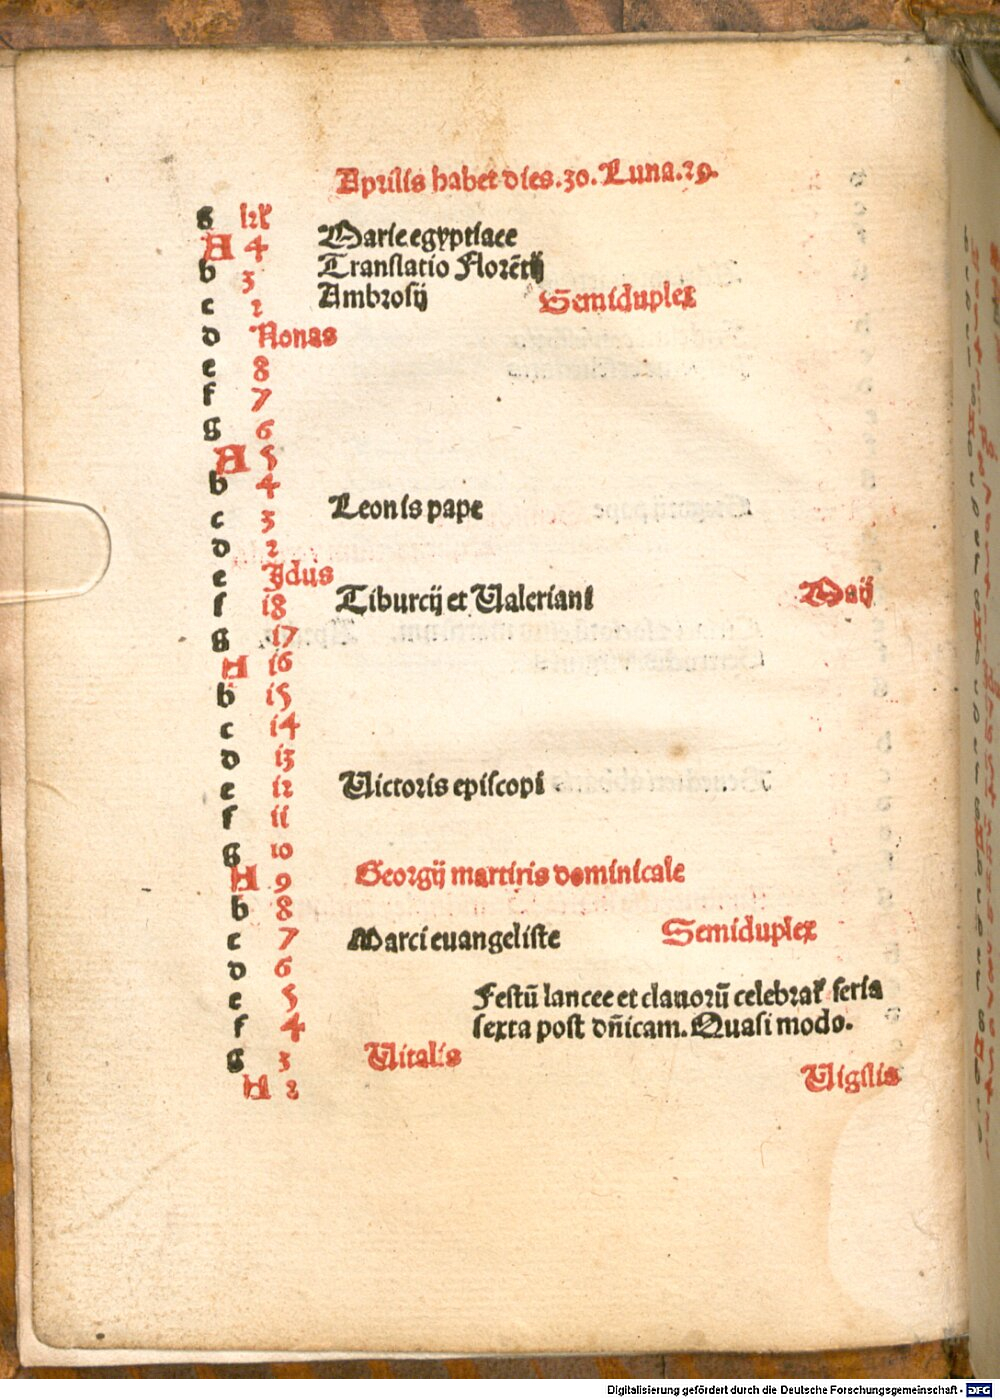 Aprilis habet dies .30. Luna .29.
g kł
A 4 Marie egyptiace
b 3 Translatio Florētij
c 2 Ambrosij Semiduplex
d Nonas
e 8
f 7
g 6
A 5
b 4
c 3 Leonis pape
d 2
e Jdus
f 18 Tiburcij et Valeriani Maij
g 17
A 16
b 15
c 14
d 13
e 12 Victoris episcopi
f 11
g 10
A 9 Georgij martiris dominicale
b 8
c 7 Marci euangeliste Semiduplex
d 6
e 5 Festū lancee et clauorū celebrat᷑ feria
f 4 sexta post dn̄icam. Quasi modo.
g 3 Vitalis
A 2 Vigilia
Digitalisierung gefördert durch die Deutsche Forschungsgemeinschaft - DFG